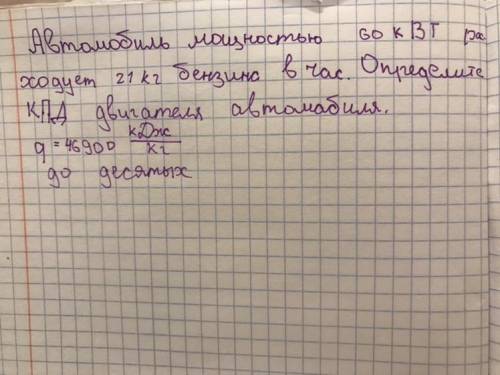 Автомобиль мощностью 60 кВТ ра
ходует 21 кг бензина в час. Определите
КПД двигателя автомабиля.
q = 46900 кДж/кг
до десятых